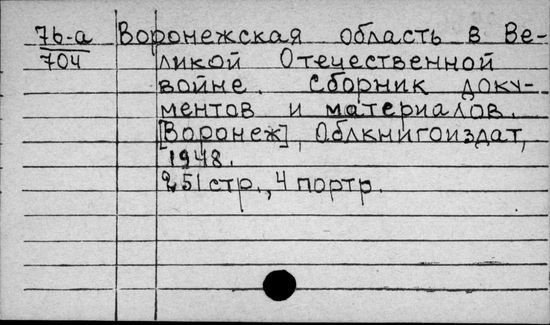 76-а Воронежская область в Ве-
704 ликой Отечественной
войне. Сборник доку-
ментов и материалов.
[Воронеж], Облкнигоиздат,
1948.
251 стр., 4 портр.